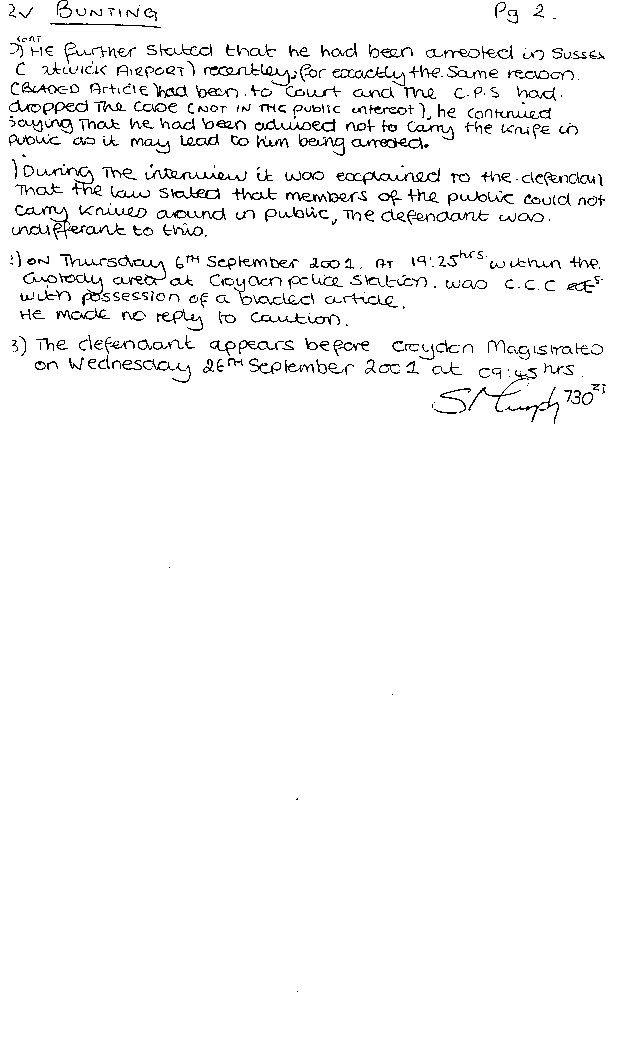 2v BUNTING Pg 2.
CONT
?) HE further stated that he had been arrested in SUSSEX
( ATWICK AIRPORT) recently, for exactly the same reason.
(BLADED Article had been to Court and The C.P.S had
dropped The Case (NOT IN THE public interest), he continued
saying That he had been advised not to carry the knife in
Public as it may lead to him being arrested.
) During The interview it was explained to the defendan
That the law stated that members of the public could not
carry knives around in public, The defendant was
indifferant to this.
) ON Thursday 6TH September 2001. AT 19:25hrs within the
Custody area at Croydon police station. was C.C.C
with possession of a bladed article.
He made no reply to caution.
3) The defendant appears before Croydon Magistrates
on Wednesday 26TH September 2001 at 09:45 hrs.
730ZD